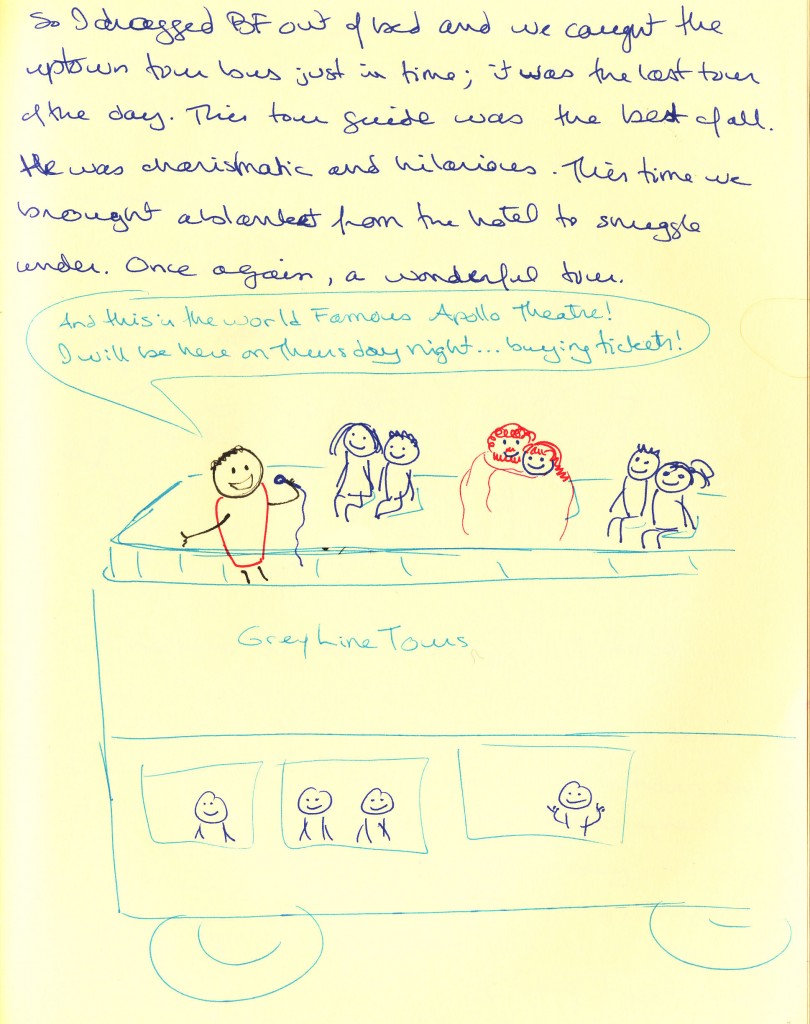 So I dragged BF out of bed and we caught the
uptown tour bus just in time; it was the last tour
of the day. This tour guide was the best of all.
He was charismatic and hilarious. This time we
brought a blanket from the hotel to snuggle
under. Once again, a wonderful tour.
And this is the world Famous Apollo Theatre!
I will be here on Thursday night... buying tickets!
Grey Line Tours